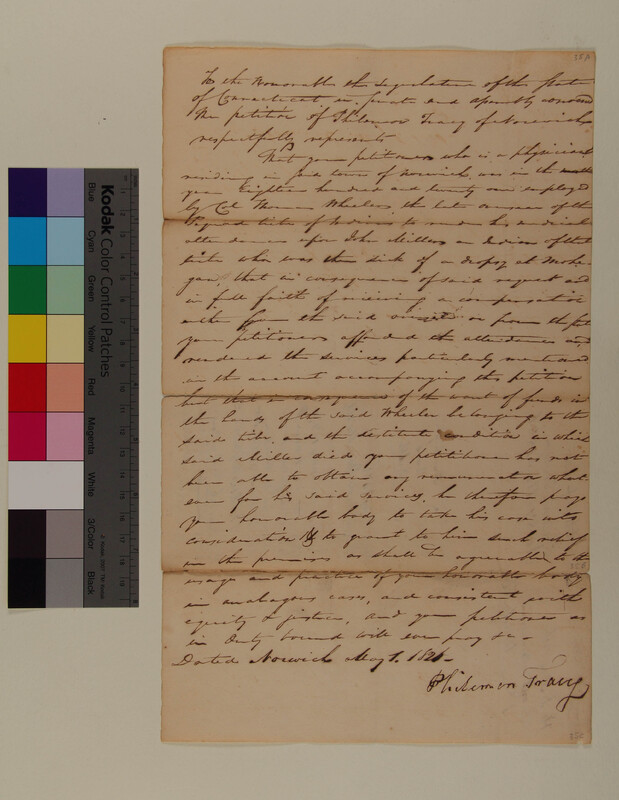 To the Honorable the Legislature of the State
of Connecticut in private and assembly convened
The petition of Philemon Tracy of Norwich
respectfully represents
That your petitioner who is a physician
residing in said town of Norwich, was in the
year Eighteen hundred and twenty one employed
by Col Thomas Wheeler the late overseer of the
Pequod tribe of Indians to render his medical
attendance upon John Miller an Indian of that
tribe who was then sick of a dropsy at Mohe-
gan, that in consequence of said request and
in full faith of receiving a compensation
either from the said or from the
your petitioner afforded the attendance and
rendered the services particularly mentioned
in the account accompanying this petition
but that in consequence of the want of funds in
the hands of the said Wheeler belonging to the
said tribe, and the destitute condition in which
said Miller died your petitioner has not
been able to obtain any remuneration what
ever for his said services, he therefore prays
your honorable body to take his case into
consideration & to grant to him such relief
in the premises as shall be agreeable to the
usage and practice of your honorable body
in analagous cases, and consistent with
equity & justice, and your petitioner as
in duty bound will ever pray &c -
Dated Norwich May 1. 1826 -
Philemon Tracy
Kodak
Color Control Patches
Blue
Cyan
Green
Yellow
Red
Magenta
White
3/Color
Black